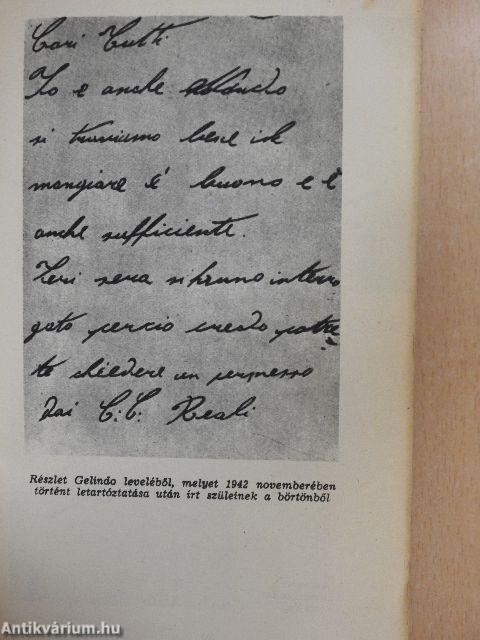 Cari Tutti
Io e anche Aldo
si troviamo bene il
mangiare é buono e è
anche sufficiente.
Ieri sera si hanno interro
gato percio credo potre
te chiedere un permesso
dai C.C. Reali
Részlet Gelindo leveléből, melyet 1942 novemberében
történt letartóztatása után írt szüleinek a börtönből
Antikvárium.hu